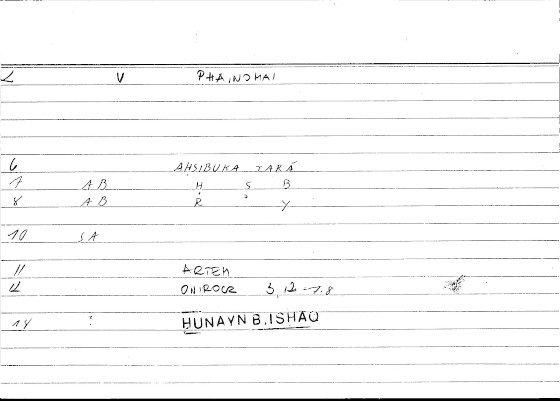 2 V PHAINOMAI
6 AHSIBUKA TARĀ
7 AB Ḥ S B
8 AB R Ṿ
10 SA
11 ARTEM
12 ONIROCR 3,12-18
14 : HUNAYN B.ISHAQ